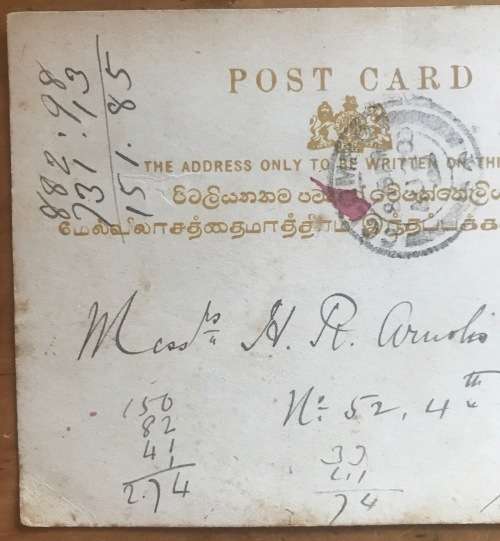 882.98
731.13
151.85
POST CARD
THE ADDRESS ONLY TO BE WRITTEN ON THI
மேல்விலாசத்தைமாத்திரம் இந்தப்பக்க
Messrs H. R.
No: 52, 4th
150
82
41
274
33
41
74